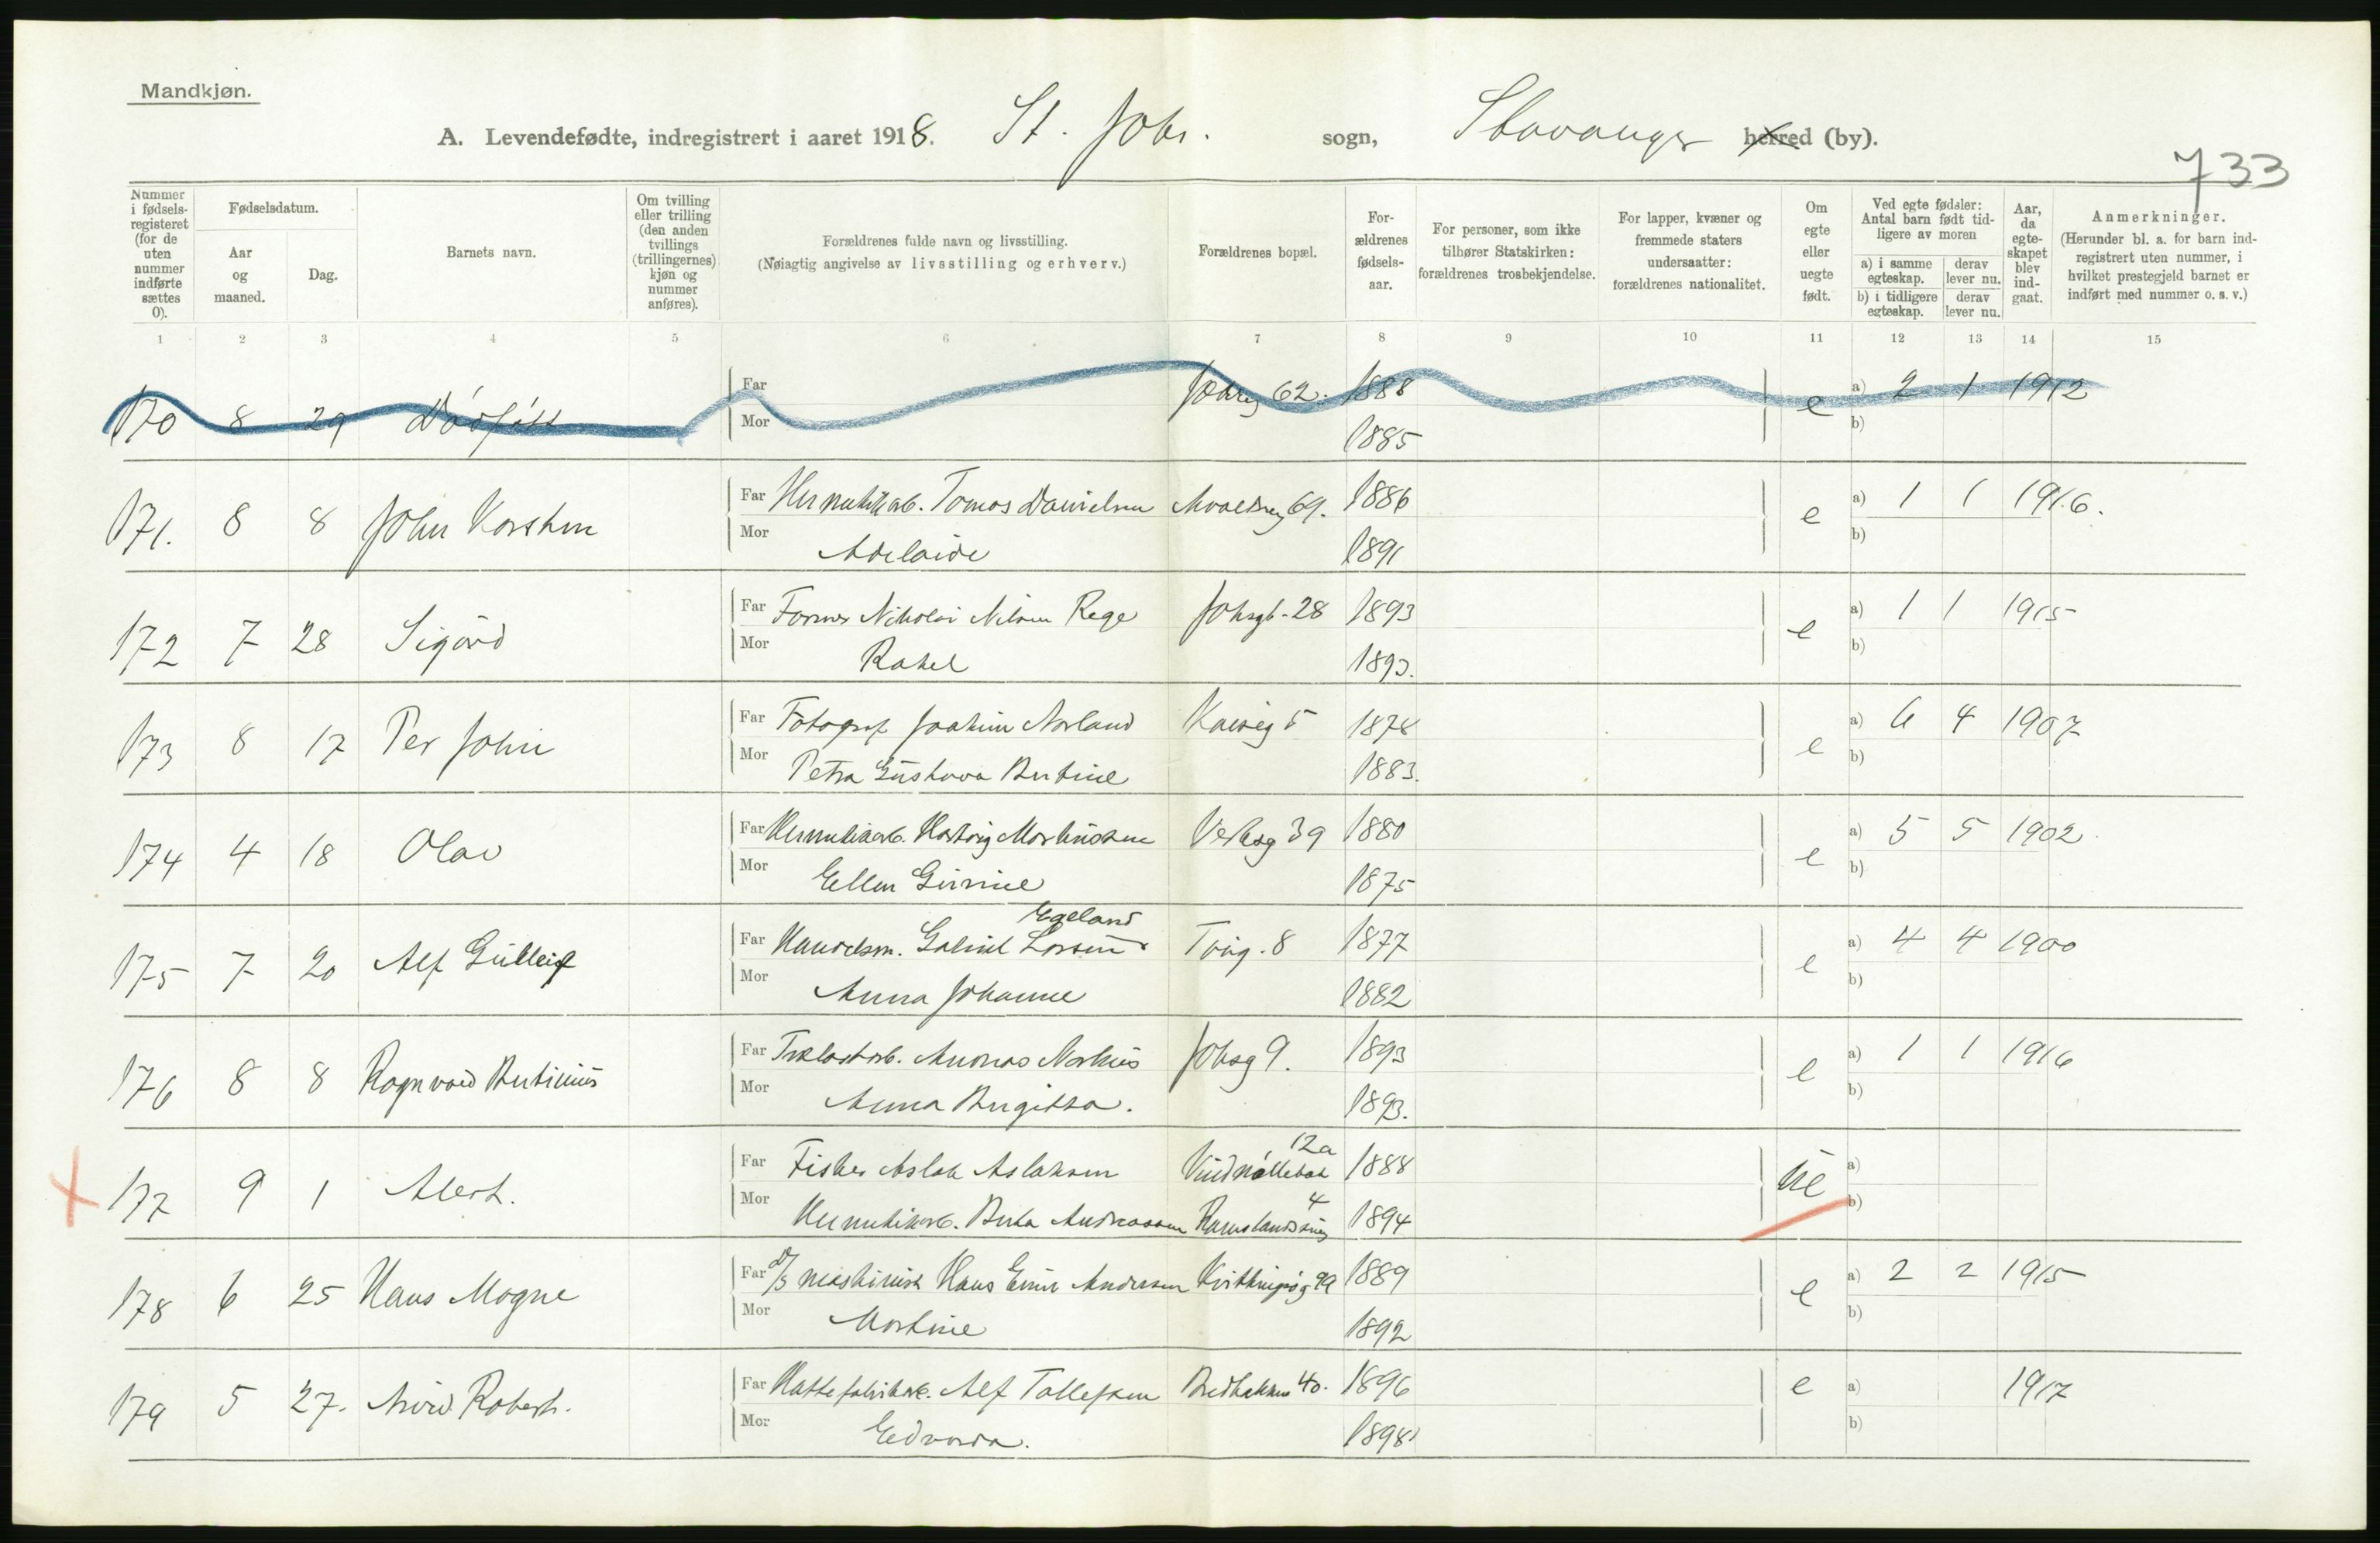 Mandkjøn.
A. Levendefødte, indregistrert i aaret 1918. St. Johs. sogn, Stavanger herred (by).
733
Nummer i fødselsregisteret (for de uten nummer indførte sættes 0).
Fødselsdatum.
Aar og maaned.
Dag.
Barnets navn.
Om tvilling eller trilling (den anden tvillings (trillingernes) kjøn og nummer anføres).
Forældrenes fulde navn og livsstilling.
(Nøiagtig angivelse av livsstilling og erhverv.)
Forældrenes bopæl.
Forældrenes fødselsaar.
For personer, som ikke tilhører Statskirken: forældrenes trosbekjendelse.
For lapper, kvæner og fremmede staters undersaatter: forældrenes nationalitet.
Om egte eller uegte født.
Ved egte fødsler: Antal barn født tidligere av moren
a) i samme egteskap. derav lever nu.
b) i tidligere egteskap. derav lever nu.
Aar, da egteskapet blev indgaat.
Anmerkninger.
(Herunder bl. a. for barn indregistrert uten nummer, i hvilket prestegjeld barnet er indført med nummer o. s. v.)
1 2 3 4 5 6 7 8 9 10 11 12 13 14 15
170 8 29 Dødfødt Far 62. 1888 e a) 2 1 1912
Mor 1885 b)
171. 8 8 John Karsten Far Hermetikarb. Tomas Danielsen 69. 1886 e a) 1 1 1916.
Mor Adelaide 1891 b)
172 7 28 Sigurd Far Former Nikolai Nilsen Rege Johsgt. 28 1893 e a) 1 1 1915
Mor Rakel 1893. b)
173 8 17 Per John Far Fotograf Joakim Norland 5 1878 e a) 6 4 1907
Mor Petra Gustava Bertine 1883. b)
174 4 18 Olav Far Hermetikarb. Hartvig Martinsen 39 1880 e a) 5 5 1902
Mor Ellen Gurine 1875 b)
Egeland
175 7 20 Alf Gulleif Far Handelsm. Gabriel Larsen 8 1877 e a) 4 4 1900
Mor Anna Johanne 1882 b)
176 8 8 Ragnvald Bertinius Far Andreas Johsg 9. 1893 e a) 1 1 1916
Mor Anna Birgitta. 1893. b)
12a
177 9 1 Albert. Far Fisker Aslak Aslaksen Vindmøllebak 1888 ue a)
4
Mor Hermetikarb. Berta Andreassen Ramslandsmug 1894 b)
178 6 25 Hans Magne Far D/S maskinist Hans Einar Andersen 1889 e a) 2 2 1915
Mor Martine 1892 b)
179 5 27. Arvid Robert. Far Alf Tollefsen Bredbakken 40. 1896 e a) 1917
Mor Edvarda. 1898 b)